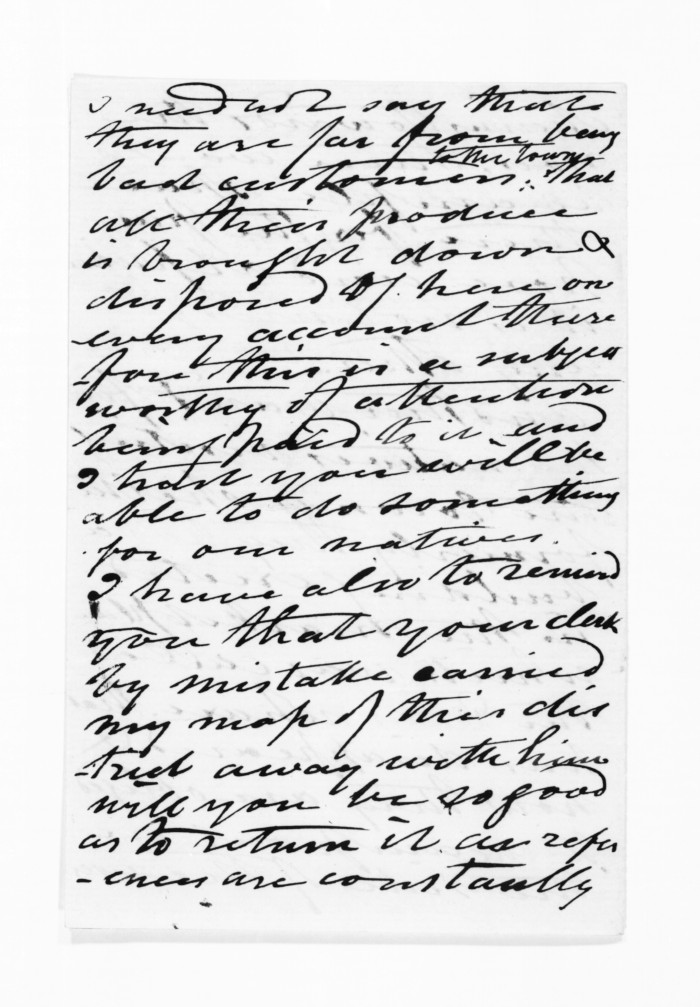 I need not say that
they are far from being
bad customers to the Town; That
all their produce
is brought down &
disposed of here on
every account there
-fore this is a subject
worthy of attention
being paid to it and
I trust you will be
able to do something
for our natives.
I have also to remind
you that your clerk
by mistake carried
my map of this dis
-trict away with him
will you be so good
as to return it as refer
-ences are constantly